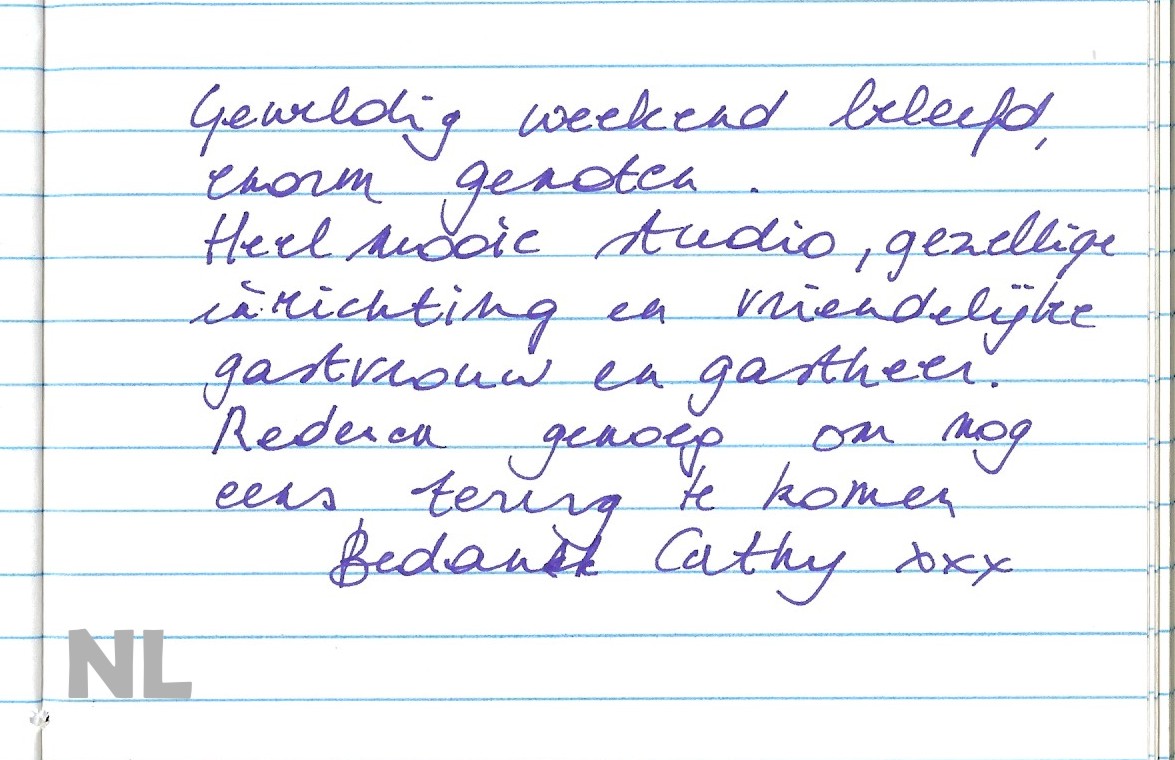 Geweldig weekend beleefd,
enorm genoten.
Heel mooie studio, gezellige
inrichting en vriendelijke
gastvrouw en gastheer.
Redenen genoeg om nog
eens terug te komen
Bedankt Cathy xxx
NL